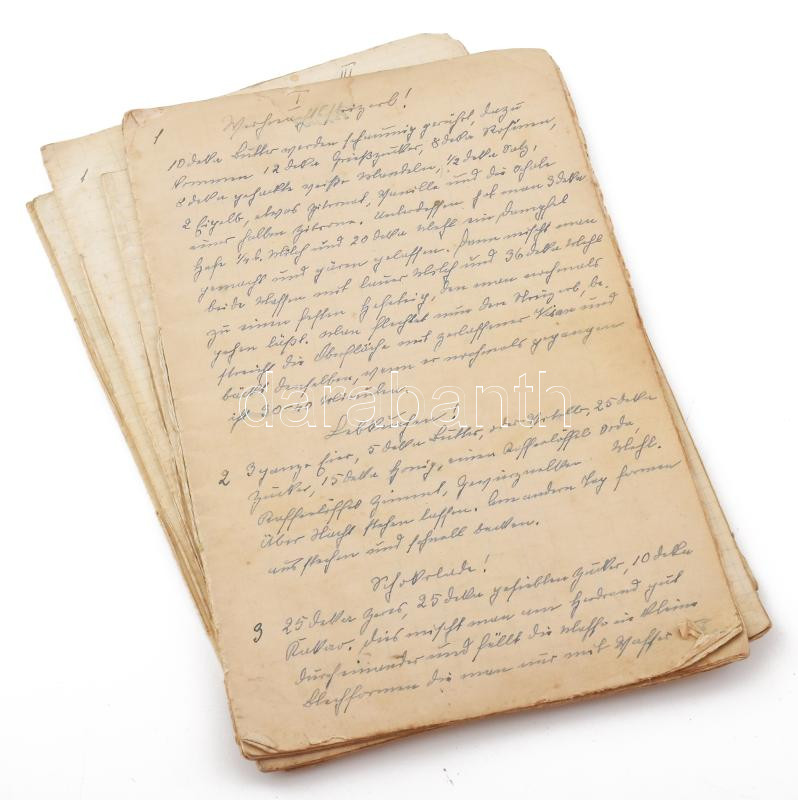 I
III
1
1
10 deka Butter werden schaumig gerührt, dazu
kommen 12 deka Grießzucker, 8 deka Rosinen,
8 deka gehackte weiße Mandeln, ½ deka Salz,
2 Eigelb, etwas Zitronat, Vanille und die Schale
einer halben Zitrone. Unterdessen hat man 3 deka
Hefe ¼ l. Milch und 20 deka Mehl ein Dampfel
gemacht und gären gelassen. Dann mischt man
beide Massen mit lauer Milch und 36 deka Mehl
zu einem festen Hefeteig, den man nochmals
gehen läßt. Man flechtet nun den Striezerl, be-
streicht die Oberfläche mit zerlassener und
bäckt denselben, wenn er nochmals gegangen
ist 30-40 Minuten.
darabanth
Lebkuchen!
2 3 ganze Eier, 5 deka Butter, oder 25 deka
Zucker, 15 deka Honig, einen Kaffeelöffel Soda,
Kaffeelöffel Zimmt, Gewürznelken Mehl.
Über Nacht stehen lassen. Am andern Tag formen
ausstechen und schnell backen.
Schokolade!
3 25 deka Ceres, 25 deka gesiebten Zucker, 10 deka
Kakao. Dies mischt man am Herdrand gut
durcheinander und füllt die Masse in kleine
Blechformen die man nur mit Wasser